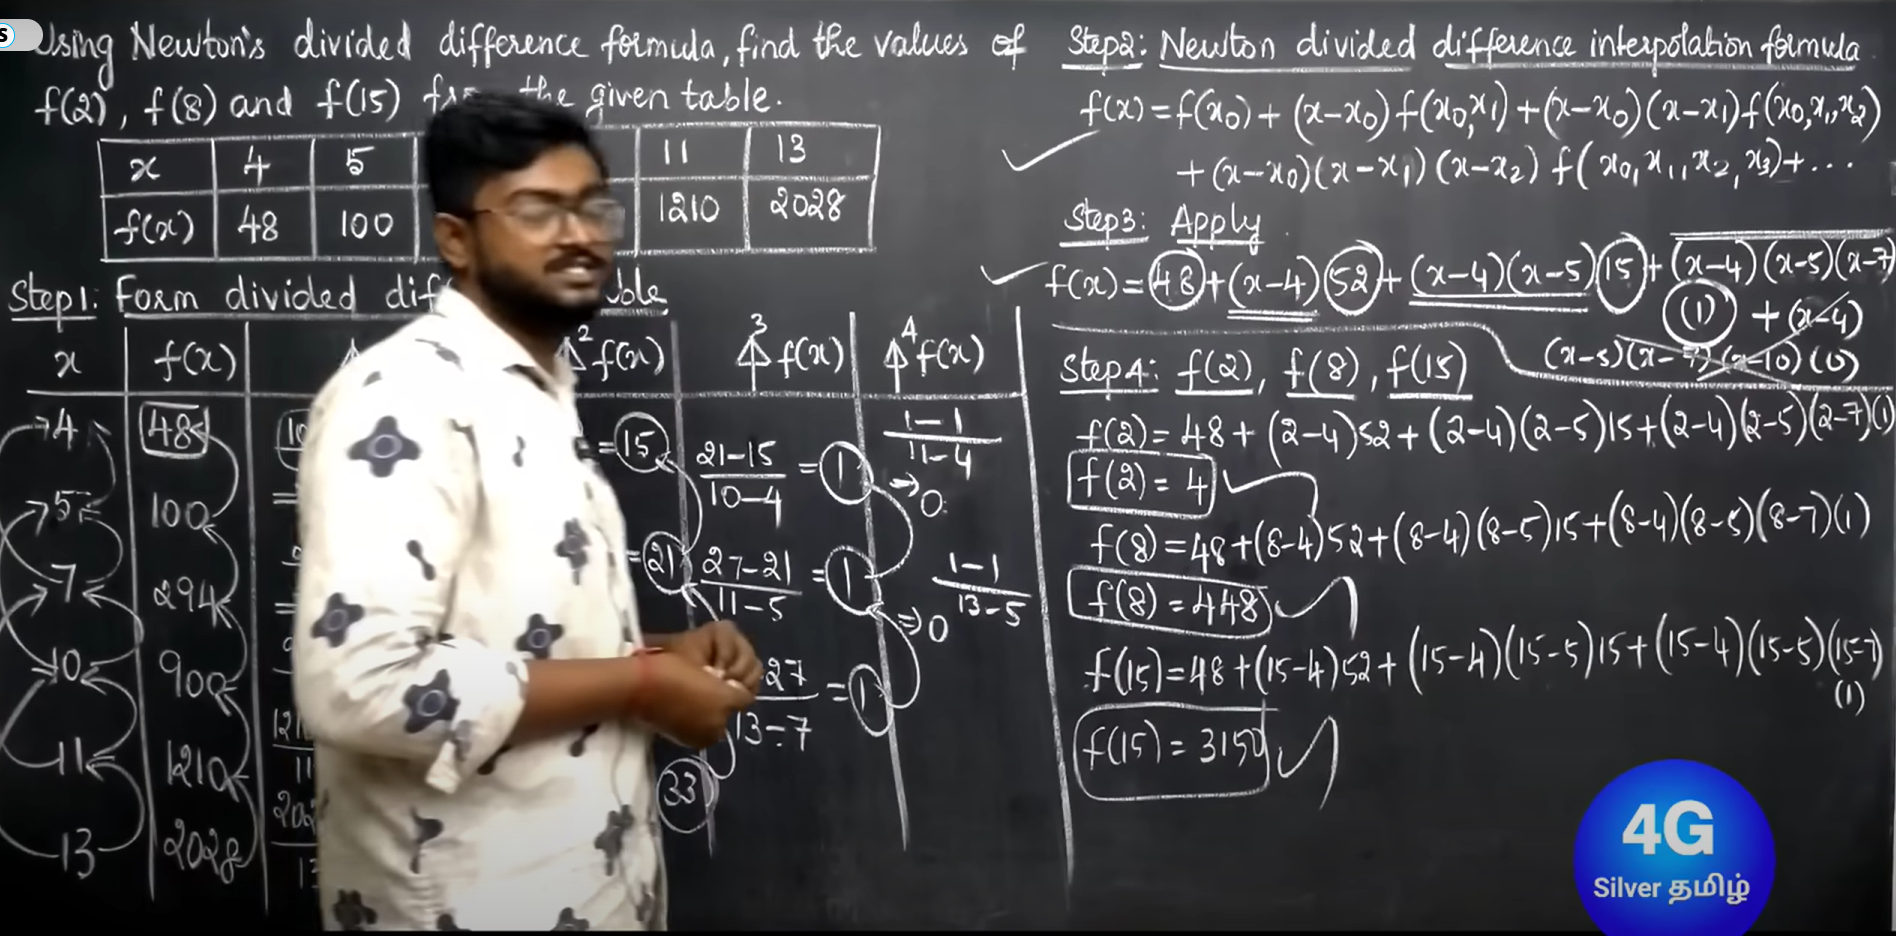 Using Newton's divided difference formula, find the values of
f(2), f(8) and f(15) the given table.
x 4 5 11 13
f(x) 48 100 1210 2028
Step1: Form divided
x f(x) ²f(x) ³f(x) ⁴f(x)
4 48 =15 21-15/10-4 =1 1-1/11-4 →0
5 100 =21 27-21/11-5 =1 1-1/13-5 ⇒0
7 294 27/13-7 =1
10 900
11 1210 33
13 2028
Step2: Newton divided difference interpolation formula
f(x)=f(x₀)+(x-x₀)f(x₀,x₁)+(x-x₀)(x-x₁)f(x₀,x₁,x₂)
+(x-x₀)(x-x₁)(x-x₂)f(x₀,x₁,x₂,x₃)+...
Step3: Apply
f(x)=48+(x-4)52+(x-4)(x-5)15+(x-4)(x-5)(x-7)
(1)+(x-4)
(x-5)(x-7)(x-10)(0)
Step4: f(2), f(8), f(15)
f(2)=48+(2-4)52+(2-4)(2-5)15+(2-4)(2-5)(2-7)(1)
f(2)=4
f(8)=48+(8-4)52+(8-4)(8-5)15+(8-4)(8-5)(8-7)(1)
f(8)=448
f(15)=48+(15-4)52+(15-4)(15-5)15+(15-4)(15-5)(15-7)
(1)
f(15)=3150
4G
Silver தமிழ்